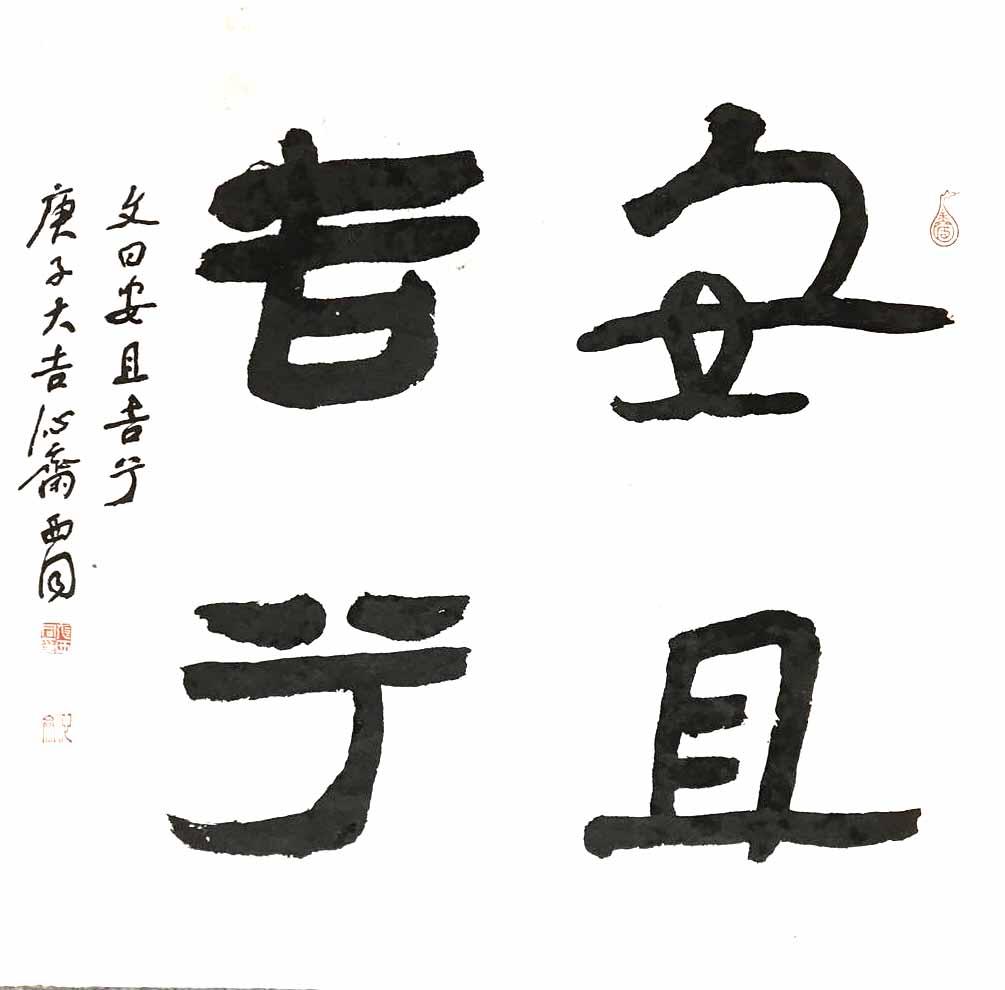 安且
吉兮
文曰安且吉兮
庚子大吉沁齋西同